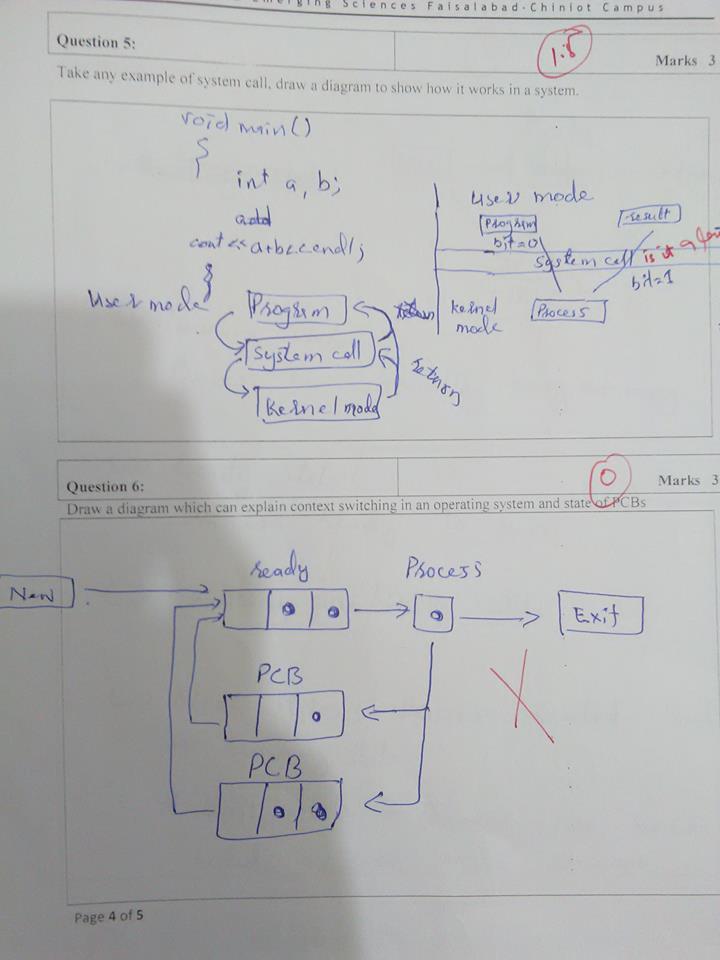 Emerging Sciences Faisalabad-Chiniot Campus
Question 5:
1.5
Marks 3
Take any example of system call, draw a diagram to show how it works in a system.
void main()
{
int a, b;
add
cout << a+b << endl;
}
user mode
Progrim
bit=0
result
System call is it a
bit=1
kernel
mode
Process
User mode
Progrim
System call
Kernel mode
return
Question 6:
0
Marks 3
Draw a diagram which can explain context switching in an operating system and state of PCBs
New
ready
Process
Exit
PCB
PCB
Page 4 of 5